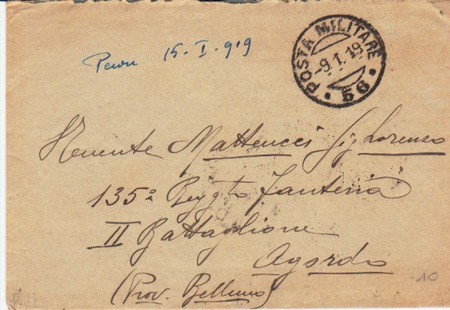 15-I-919
POSTA MILITARE
-9.1.19
• 56 •
Tenente Matteucci Sig Lorenzo
135° Regg.to Fanteria
II Battaglione
Agordo
(Prov. Belluno)
10